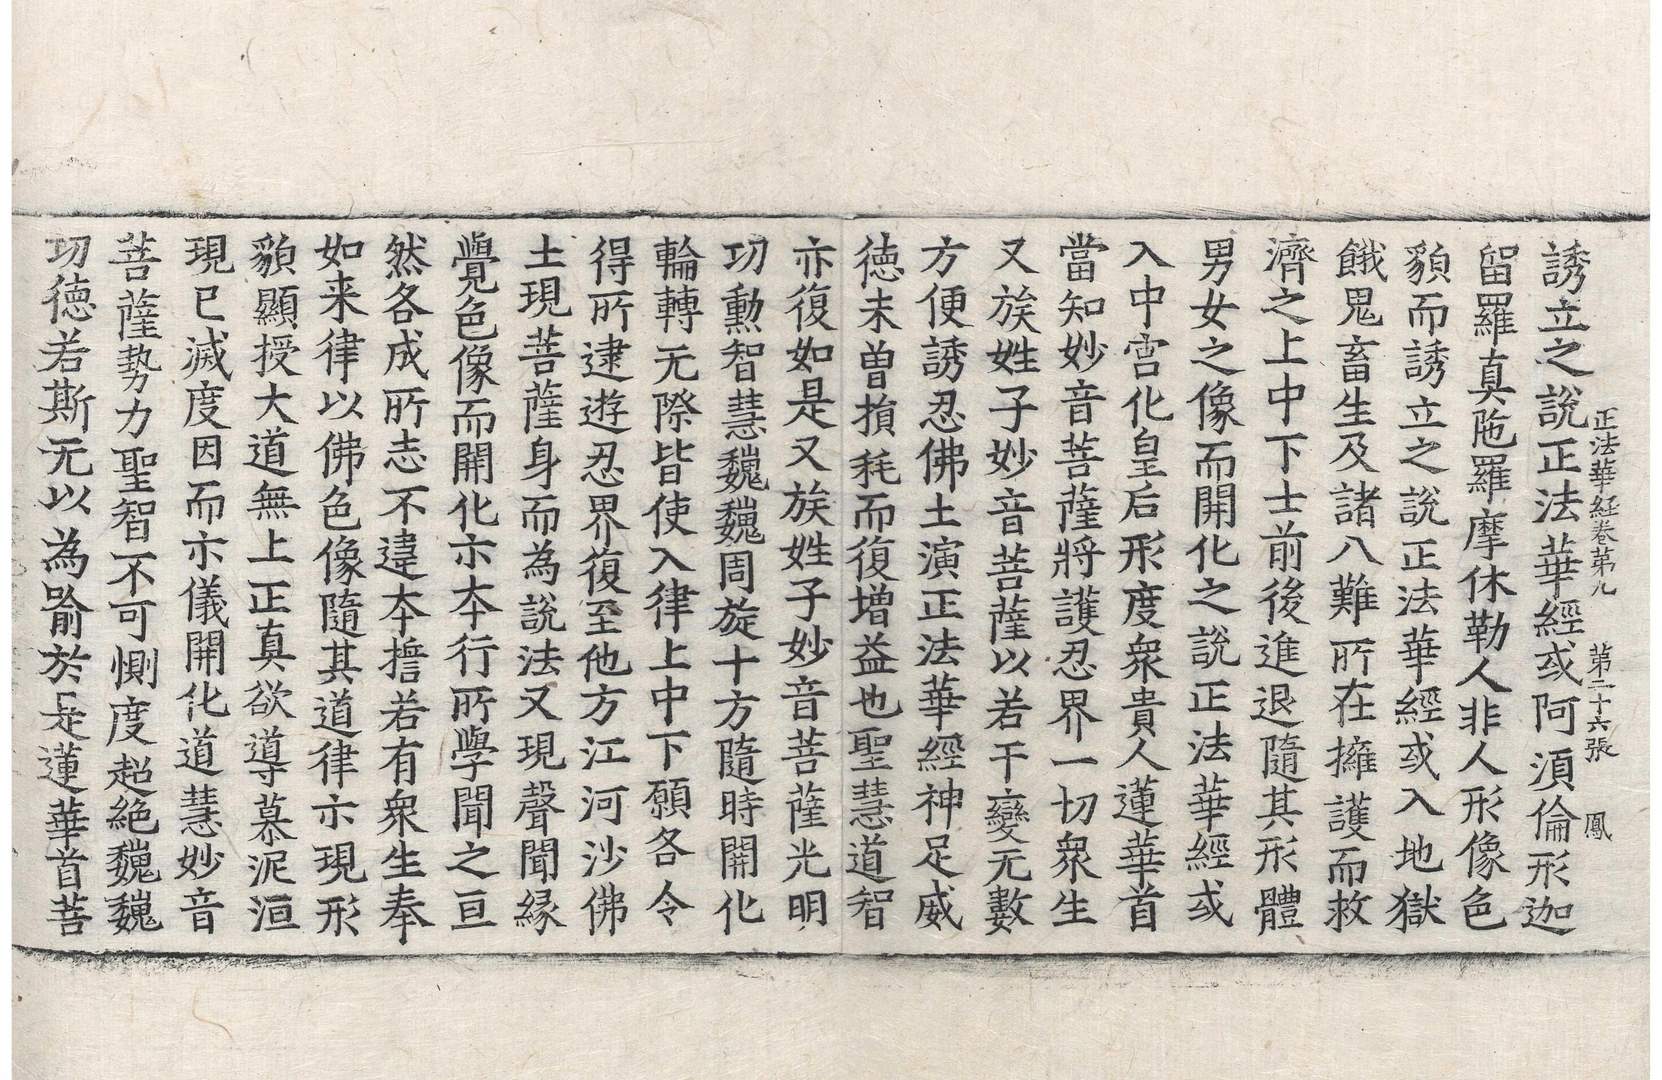 正法華経卷苐九　苐二十六張　鳳
誘立之說正法華經或阿湏倫形迦
留羅真陁羅摩休勒人非人形像色
貌而誘立之說正法華經或入地獄
餓鬼畜生及諸八難所在擁護而救
濟之上中下士前後進退隨其形體
男女之像而開化之說正法華經或
入中宮化皇后形度衆貴人蓮華首
當知妙音菩薩將護忍界一切衆生
又族姓子妙音菩薩以若干變无數
方便誘忍佛土演正法華經神足威
徳未曽損耗而復增益也聖慧道智
亦復如是又族姓子妙音菩薩光明
功勳智慧魏魏周旋十方隨時開化
輪轉无際皆使入律上中下願各令
得所逮遊忍界復至他方江河沙佛
土現菩薩身而為說法又現聲聞緣
覺色像而開化亦本行所學聞之亘
然各成所志不違本擔若有衆生奉
如来律以佛色像隨其道律亦現形
貌顯授大道無上正真欲導慕泥洹
現已滅度因而亦儀開化道慧妙音
菩薩勢力聖智不可惻度超絶魏魏
功徳若斯无以為喻於是蓮華首菩